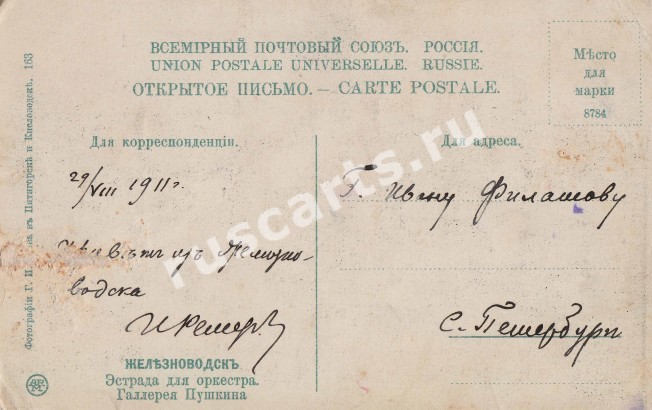 ВСЕМІРНЫЙ ПОЧТОВЫЙ СОЮЗЪ. РОССІЯ.
UNION POSTALE UNIVERSELLE. RUSSIE.
ОТКРЫТОЕ ПИСЬМО. — CARTE POSTALE.
Мѣсто
для
марки
8784
Для корреспонденціи.
Для адреса.
29/VIII 1911 г.
Привѣтъ изъ Желѣзно-
водска
Г. Ивану Филатову
С. Петербургъ
ЖЕЛѢЗНОВОДСКЪ
Эстрада для оркестра.
Галлерея Пушкина
Фотографіи Г. И. въ Пятигорскѣ и Кисловодскѣ. 163
ruscarts.ru